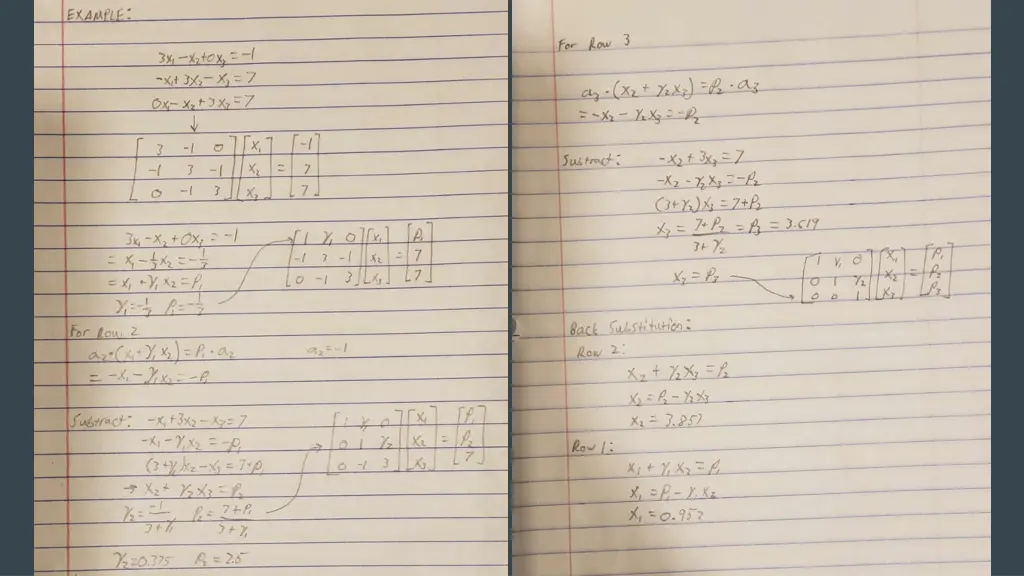 EXAMPLE:
3x₁-x₂+0x₃=-1
-x₁+3x₂-x₃=7
0x₁-x₂+3x₃=7
↓
[3 -1 0; -1 3 -1; 0 -1 3] [x₁; x₂; x₃] = [-1; 7; 7]
3x₁-x₂+0x₃=-1
=x₁-1/3x₂=-1/3
=x₁+γ₁x₂=P₁
γ₁=-1/3 P₁=-1/3
[1 γ₁ 0; -1 3 -1; 0 -1 3] [x₁; x₂; x₃] = [P₁; 7; 7]
For Row 2
a₂·(x₁+γ₁x₂)=P₁·a₂ a₂=-1
=-x₁-γ₁x₂=-P₁
Subtract: -x₁+3x₂-x₃=7
-x₁-γ₁x₂=-P₁
(3+γ₁)x₂-x₃=7+P₁
→x₂+γ₂x₃=P₂
γ₂=-1/3+γ₁ P₂=7+P₁/3+γ₁
γ₂=0.375 P₂=2.5
[1 γ₁ 0; 0 1 γ₂; 0 -1 3] [x₁; x₂; x₃] = [P₁; P₂; 7]
For Row 3
a₃·(x₂+γ₂x₃)=P₂·a₃
=-x₂-γ₂x₃=-P₂
Subtract: -x₂+3x₃=7
-x₂-γ₂x₃=-P₂
(3+γ₂)x₃=7+P₂
x₃=7+P₂/3+γ₂=P₃=3.619
x₃=P₃
[1 γ₁ 0; 0 1 γ₂; 0 0 1] [x₁; x₂; x₃] = [P₁; P₂; P₃]
Back Substitution:
Row 2:
x₂+γ₂x₃=P₂
x₂=P₂-γ₂x₃
x₂=3.857
Row 1:
x₁+γ₁x₂=P₁
x₁=P₁-γ₁x₂
x₁=0.952